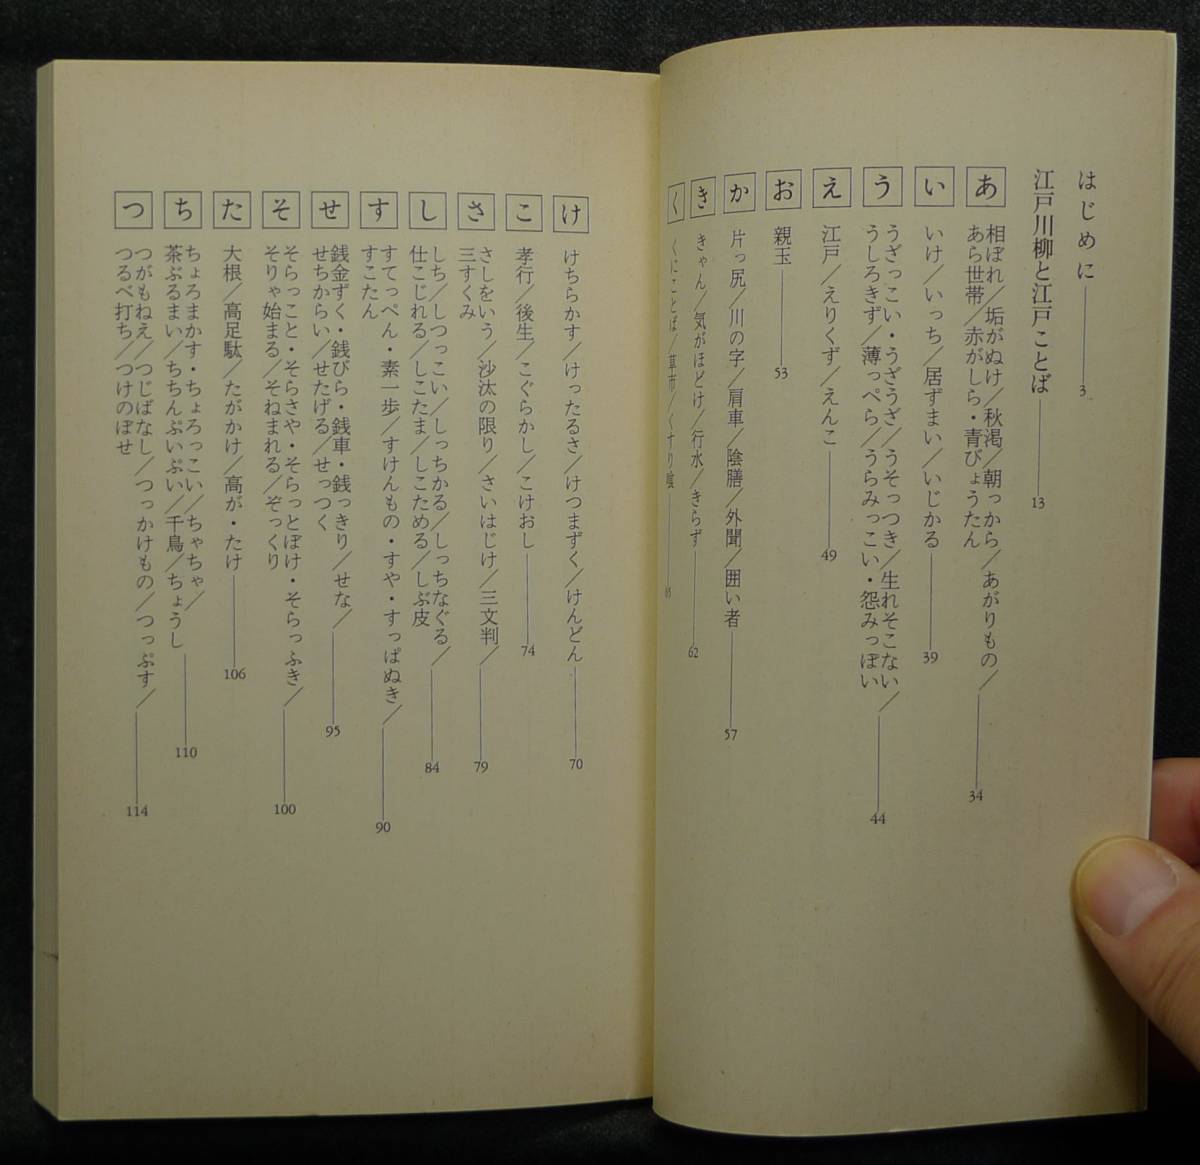 はじめに 3
江戸川柳と江戸ことば 13
あ
相ぼれ／垢がぬけ／秋渇／朝っから／あがりもの／
あら世帯／赤がしら・青びょうたん 34
い
いけ／いっち／居ずまい／いじかる 39
う
うざっこい・うざうざ／うそっつき／生れそこない／
うしろきず／薄っぺら／うらみっこい・怨みっぽい 44
え
江戸／えりくず／えんこ 49
お
親玉 53
か
片っ尻／川の字／肩車／陰膳／外聞／囲い者 57
き
きゃん／気がほどけ／行水／きらず 62
く
くにことば／草市／くすり喰
け
けちらかす／けったるさ／けつまずく／けんどん 70
こ
孝行／後生／こぐらかし／こけおし 74
さ
さしをいう／沙汰の限り／さいはじけ／三文判／
三すくみ 79
し
しち／しつっこい／しっちかる／しっちなぐる／
仕こじれる／しこたま／しこためる／しぶ皮 84
す
すてっぺん・素一歩／すけんもの・すや・すっぱぬき／
すこたん 90
せ
銭金ずく・銭びら・銭車・銭っきり／せな／
せちからい／せたげる／せっつく 95
そ
そらっこと・そらさや・そらっとぼけ・そらっふき／
そりゃ始まる／そねまれる／ぞっくり 100
た
大根／高足駄／たがかけ／高が・たけ 106
ち
ちょろまかす・ちょろっこい／ちゃちゃ／
茶ぶるまい／ちちんぷいぷい／千鳥／ちょうし 110
つ
つがもねえ／つじばなし／つっかけもの／つっぷす／
つるべ打ち／つけのぼせ 114